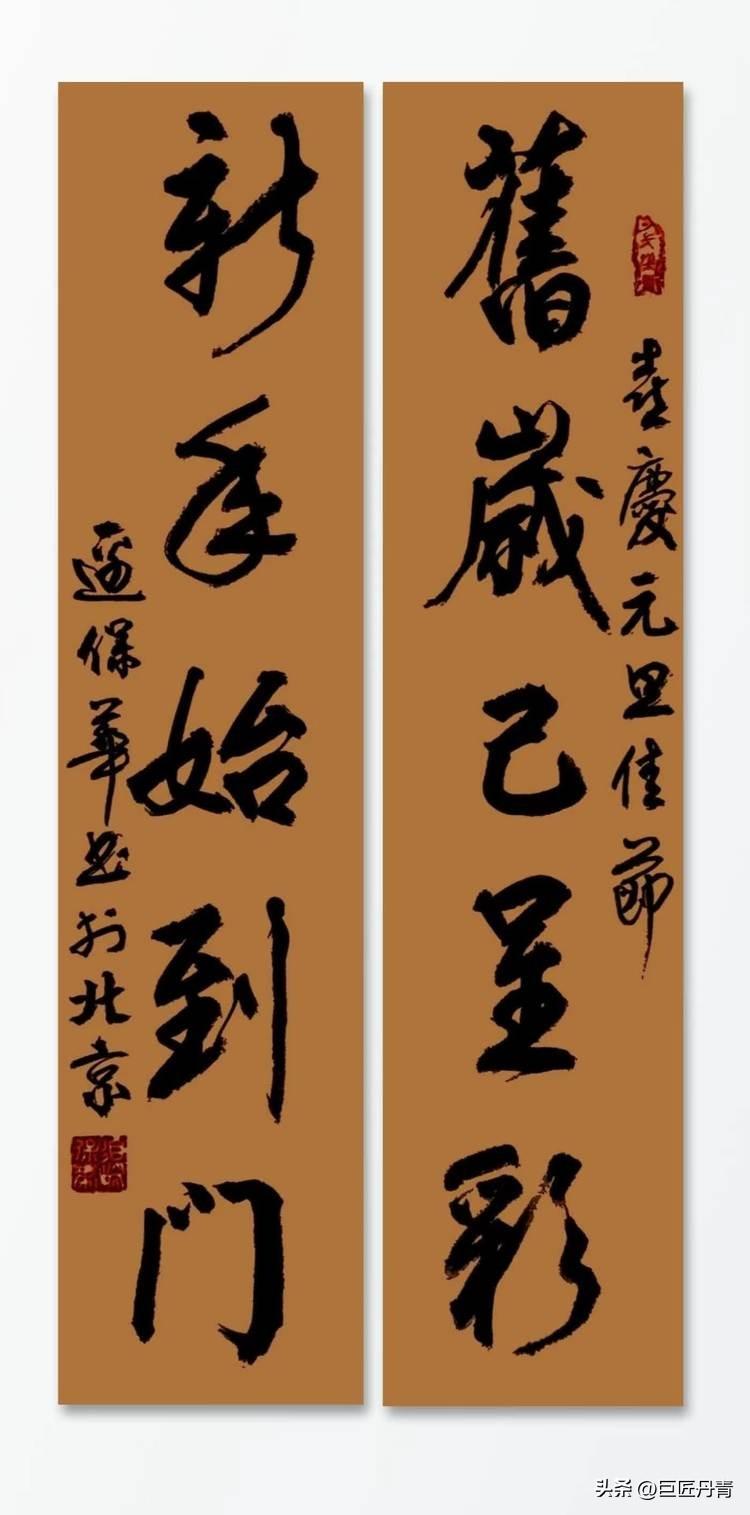 喜慶元旦佳節
舊歲已呈彩
新年始到門
保華书於北京
头条 @巨匠丹青